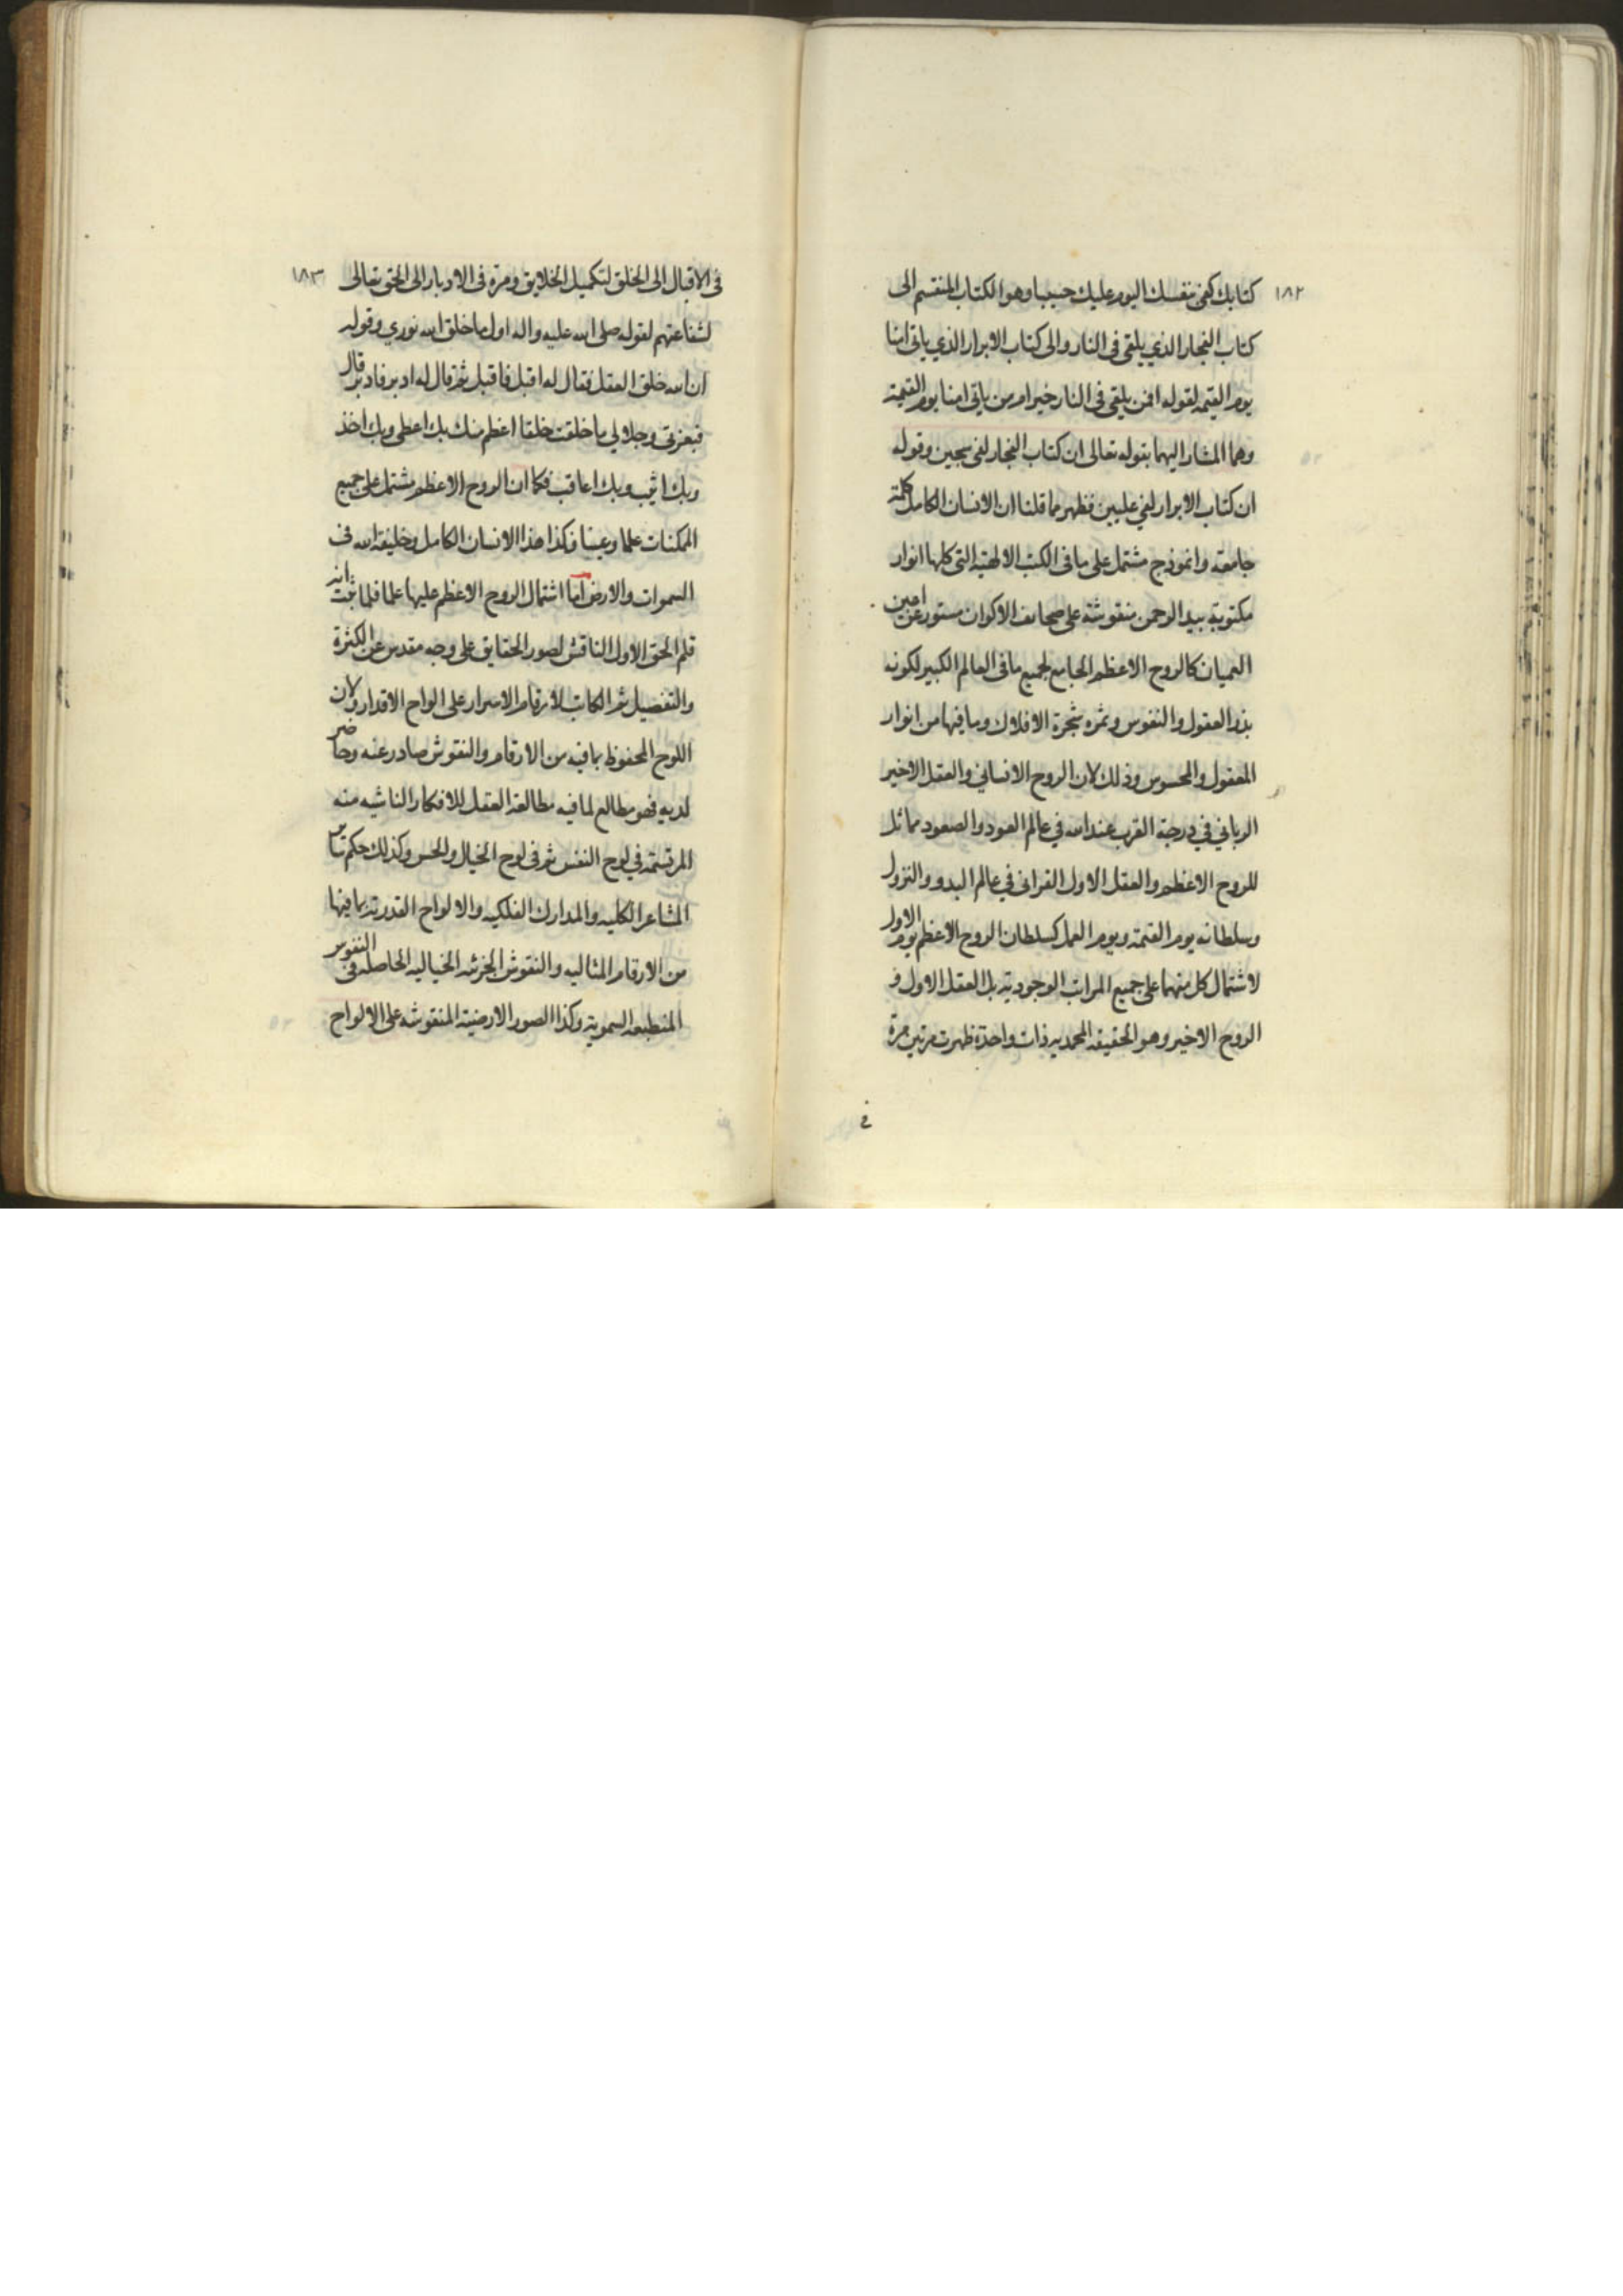 ١٨٢
كتابك كفى بنفسك اليوم عليك حسيبا وهو الكتاب المنقسم الى
كتاب الفجار الذي يلقى فى النار والى كتاب الابرار الذي ياتى امنا
يوم القيمة لقوله افمن يلقى فى النار خير ام من ياتى امنا يوم القيمة
وهما المشار اليهما بقوله تعالى ان كتاب الفجار لفى سجين وقوله
ان كتاب الابرار لفي عليين فظهر مما قلنا ان الانسان الكامل كلمة
جامعة وانموذج مشتمل على ما فى الكتب الالهية التى كلها انوار
مكتوبة بيد الرحمن منقوشة على صحائف الاكوان مستور عن اعين
العميان كالروح الاعظم الجامع لجميع ما فى العالم الكبير لكونه
بذر العقول والنفوس وثمره شجرة الافلاك وما فيها من انوار
المعقول والمحسوس وذلك لان الروح الانساني والعقل الاخير
الرباني في درجة القرب عند الله في عالم العود والصعود مماثل
للروح الاعظم والعقل الاول القرانى في عالم البدو والنزول
وسلطانه يوم القيمة ويوم العمل كسلطان الروح الاعظم يوم الاول
لاشتمال كل منهما على جميع المراتب الوجودية بل العقل الاول و
الروح الاخير وهو الحقيقة المحمديه ذات واحدة ظهرت مرتين مرة
في
١٨٣
فى الاقبال الى الخلق لتكميل الخلايق ومرة فى الادبار الى الحق تعالى
لشفاعتهم لقوله صلى الله عليه واله اول ما خلق الله نوري وقوله
ان الله خلق العقل فقال له اقبل فاقبل ثم قال له ادبر فادبر قال
فبعزتى وجلالي ما خلقت خلقا اعظم منك بك اعطى وبك اخذ
وبك اثيب وبك اعاقب فكما ان الروح الاعظم مشتمل على جميع
الممكنات علما وعينا فكذا هذا الانسان الكامل وخليفة الله فى
السموات والارض اما اشتمال الروح الاعظم عليها علما فلما ثبت انه
قلم الحق الاول الناقش لصور الحقايق على وجه مقدس عن الكثرة
والتفصيل ثم الكاتب لارقام الاسرار على الواح الاقدار ولان
اللوح المحفوظ بما فيه من الارقام والنقوش صادر عنه وحاضر
لديه فهو مطالع لما فيه مطالعة العقل للافكار الناشيه منه
المرتسمة في لوح النفس ثم فى لوح الخيال والحس وكذلك حكم سائر
المشاعر الكليه والمدارك الفلكيه والالواح القدرية بما فيها
من الارقام المثاليه والنقوش الجزئيه الخياليه الحاصله فى النفوس
المنطبعه السموية وكذا الصور الارضية المنقوشه على الالواح